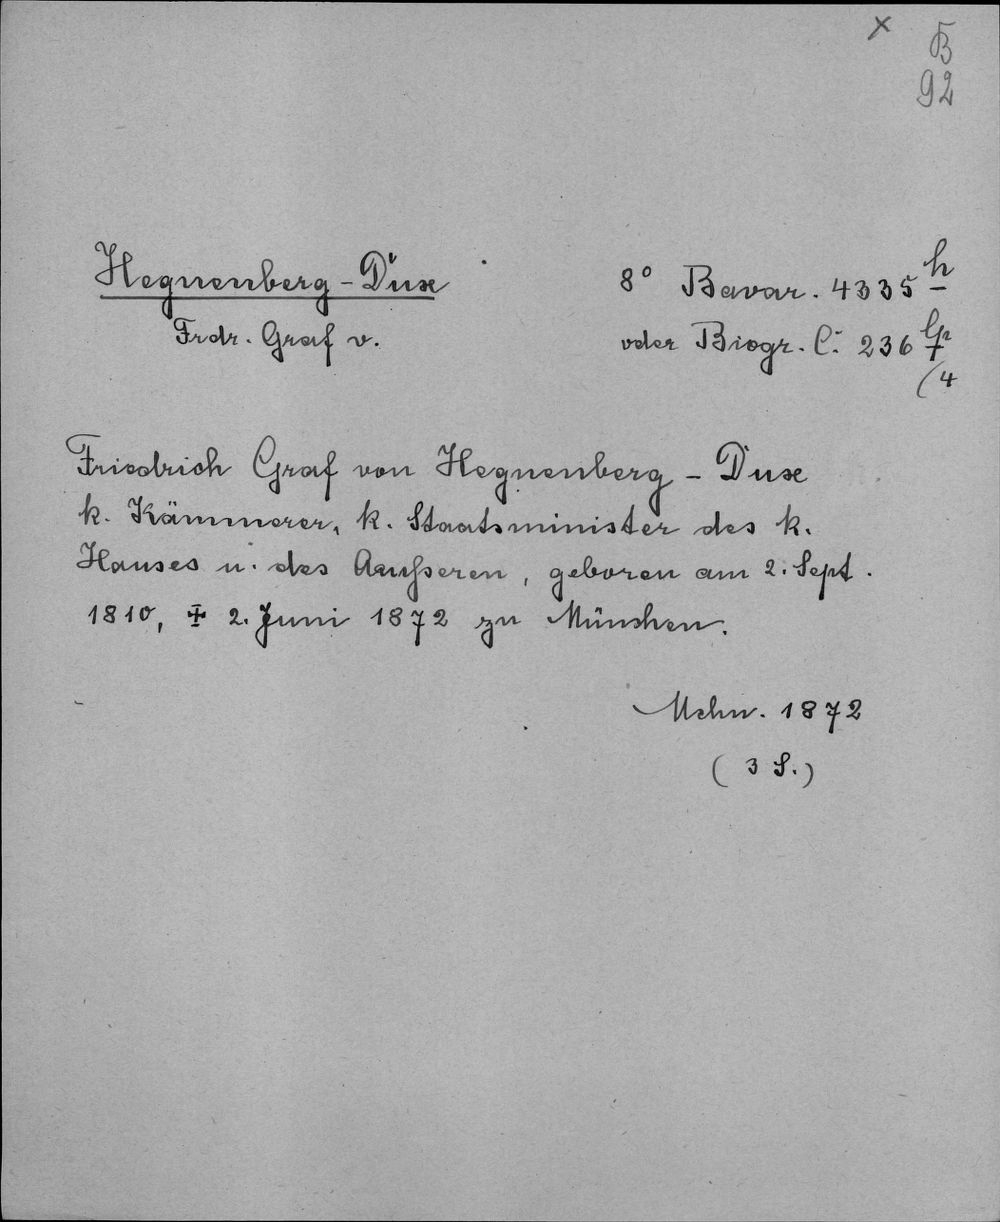 x
B
92
Hegnenberg-Dux
8° Bavar. 4335 h
Frdr. Graf v.
oder Biogr. C. 236
(4
Friedrich Graf von Hegnenberg-Dux
k. Kämmerer, k. Staatsminister des k.
Hauses u. des Aeußeren, geboren am 2. Sept.
1810, ✝ 2. Juni 1872 zu München.
Mchn. 1872
(3 S.)